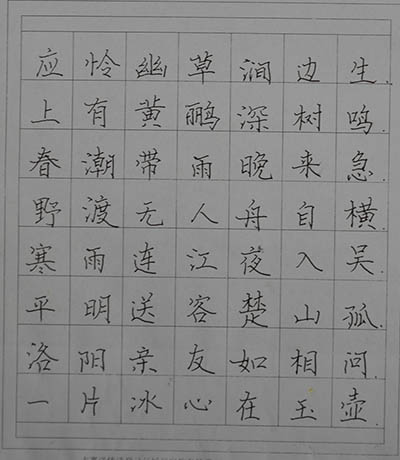 应怜幽草涧边生.
上有黄鹂深树鸣.
春潮带雨晚来急.
野渡无人舟自横.
寒雨连江夜入吴.
平明送客楚山孤.
洛阳亲友如相问.
一片冰心在玉壶.